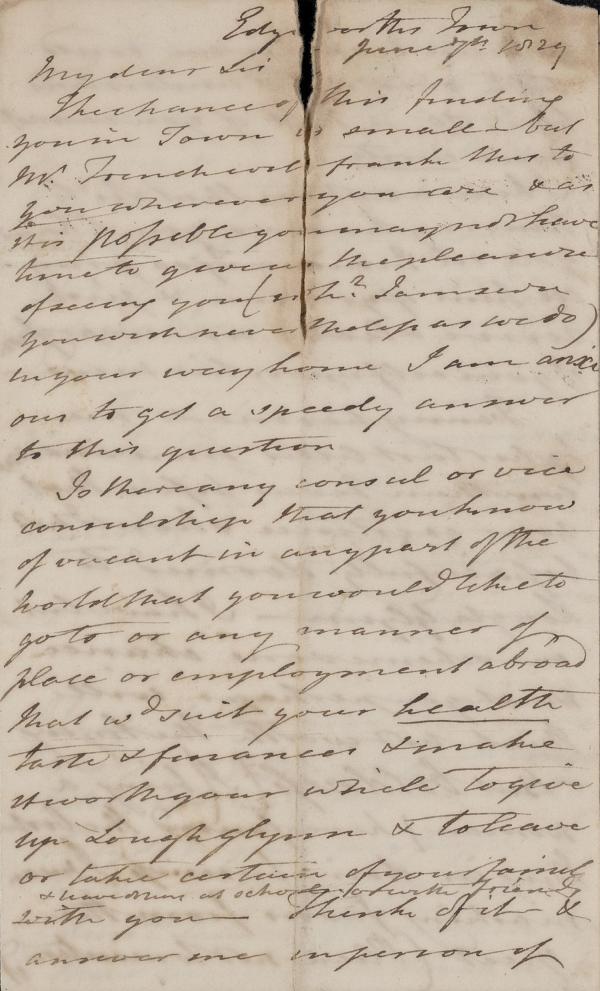 Edgeworths Town
June 7th 1829
My dear Sir
The chance of this finding
you in Town is small - but
Mr. Trench will frank this to
you wherever you are & as
it is possible you may not have
time to give us the pleasure
of seeing you ( I am sure
you wish never the less as we do)
in your way home I am anxi
ous to get a speedy answer
to this question
Is there any consul or vice
consulship that you know
of vacant in any part of the
world that you would like to
go to or any manner of
place or employment abroad
that wd suit your health
taste & finances & make
it worth your while to give
up Loughglynn & to leave
or take certain of your family
& leave some at school or with friends
with you - Think of it &
answer me in person if